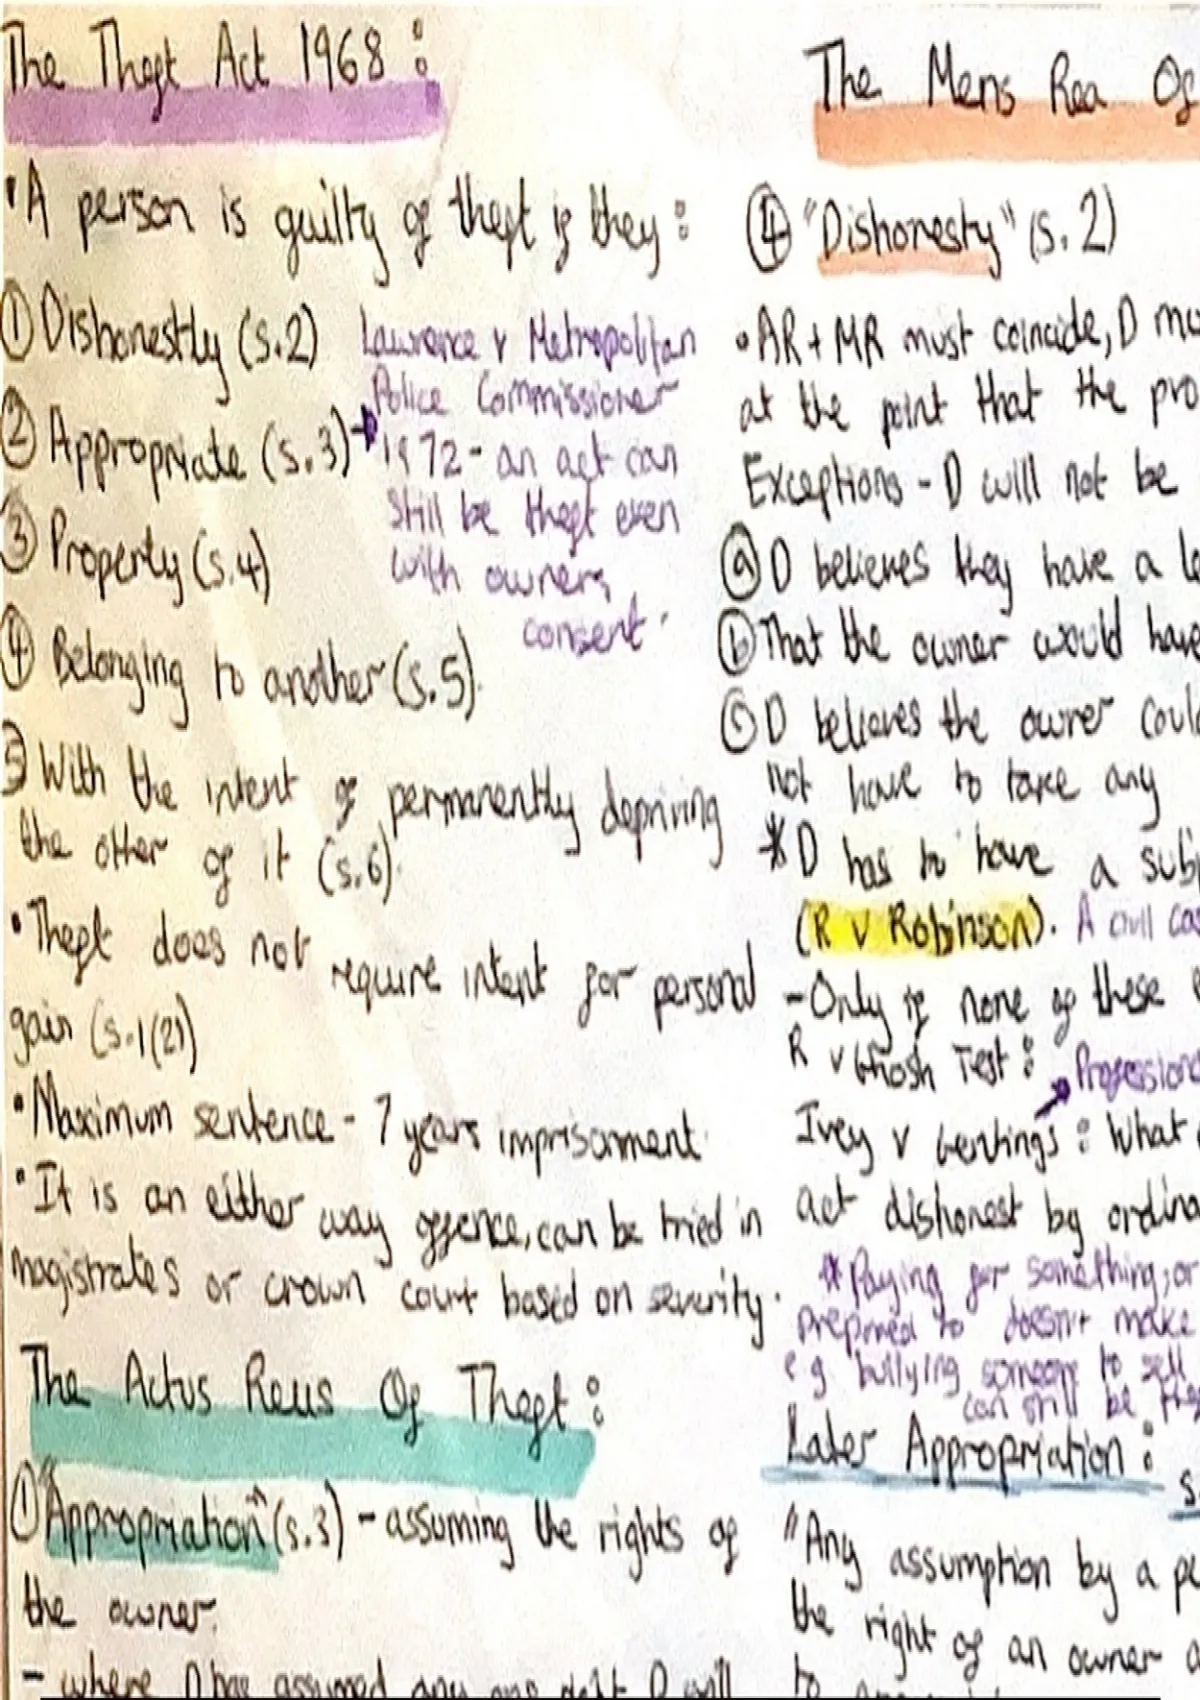 The Theft Act 1968 :
• A person is guilty of theft if they :
① Dishonestly (s.2)
② Appropriate (s.3) →
Lawrence v Metropolitan
Police Commissioner
1972 - an act can
still be theft even
with owners
consent.
③ Property (s.4)
④ Belonging to another (s.5).
⑤ With the intent of permanently depriving
the other of it (s.6).
• Theft does not require intent for personal
gain (s.1(2))
• Maximum sentence - 7 years imprisonment.
• It is an either way offence, can be tried in
magistrates or crown court based on severity.
The Actus Reus Of Theft :
① "Appropriation" (s.3) - assuming the rights of
the owner.
- where D has assumed any one
The Mens Rea Of
④ "Dishonesty" (s.2)
• AR + MR must coincide, D
at the point that the
Exceptions - D will not be
ⓐ D believes they have a
ⓑ That the owner would have
ⓒ D believes the owner
not have to take any
* D has to have a
(R v Robinson). A civil
- Only if none of these
R v Ghosh Test :
Ivey v Gentings : What
act dishonest by
* Paying for something, or
prepared to doesn't make
e.g. bullying someone to sell
can still be
Later Appropriation :
"Any assumption by a
the right of an owner
to